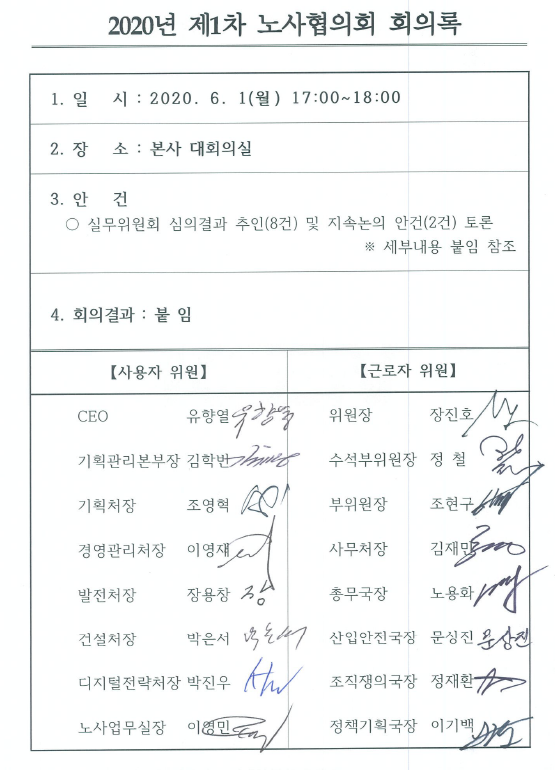 2020년 제1차 노사협의회 회의록
1. 일 시 : 2020. 6. 1(월) 17:00~18:00
2. 장 소 : 본사 대회의실
3. 안 건
○ 실무위원회 심의결과 추인(8건) 및 지속논의 안건(2건) 토론
※ 세부내용 붙임 참조
4. 회의결과 : 붙 임
【사용자 위원】 【근로자 위원】
CEO 유향열 위원장 장진호
기획관리본부장 김학빈 수석부위원장 정 철
기획처장 조영혁 부위원장 조현구
경영관리처장 이영재 사무처장 김재민
발전처장 장용창 장 총무국장 노용화
건설처장 박은서 산업안전국장 문상진 문상진
디지털전략처장 박진우 조직쟁의국장 정재환
노사업무실장 이영민 정책기획국장 이기백